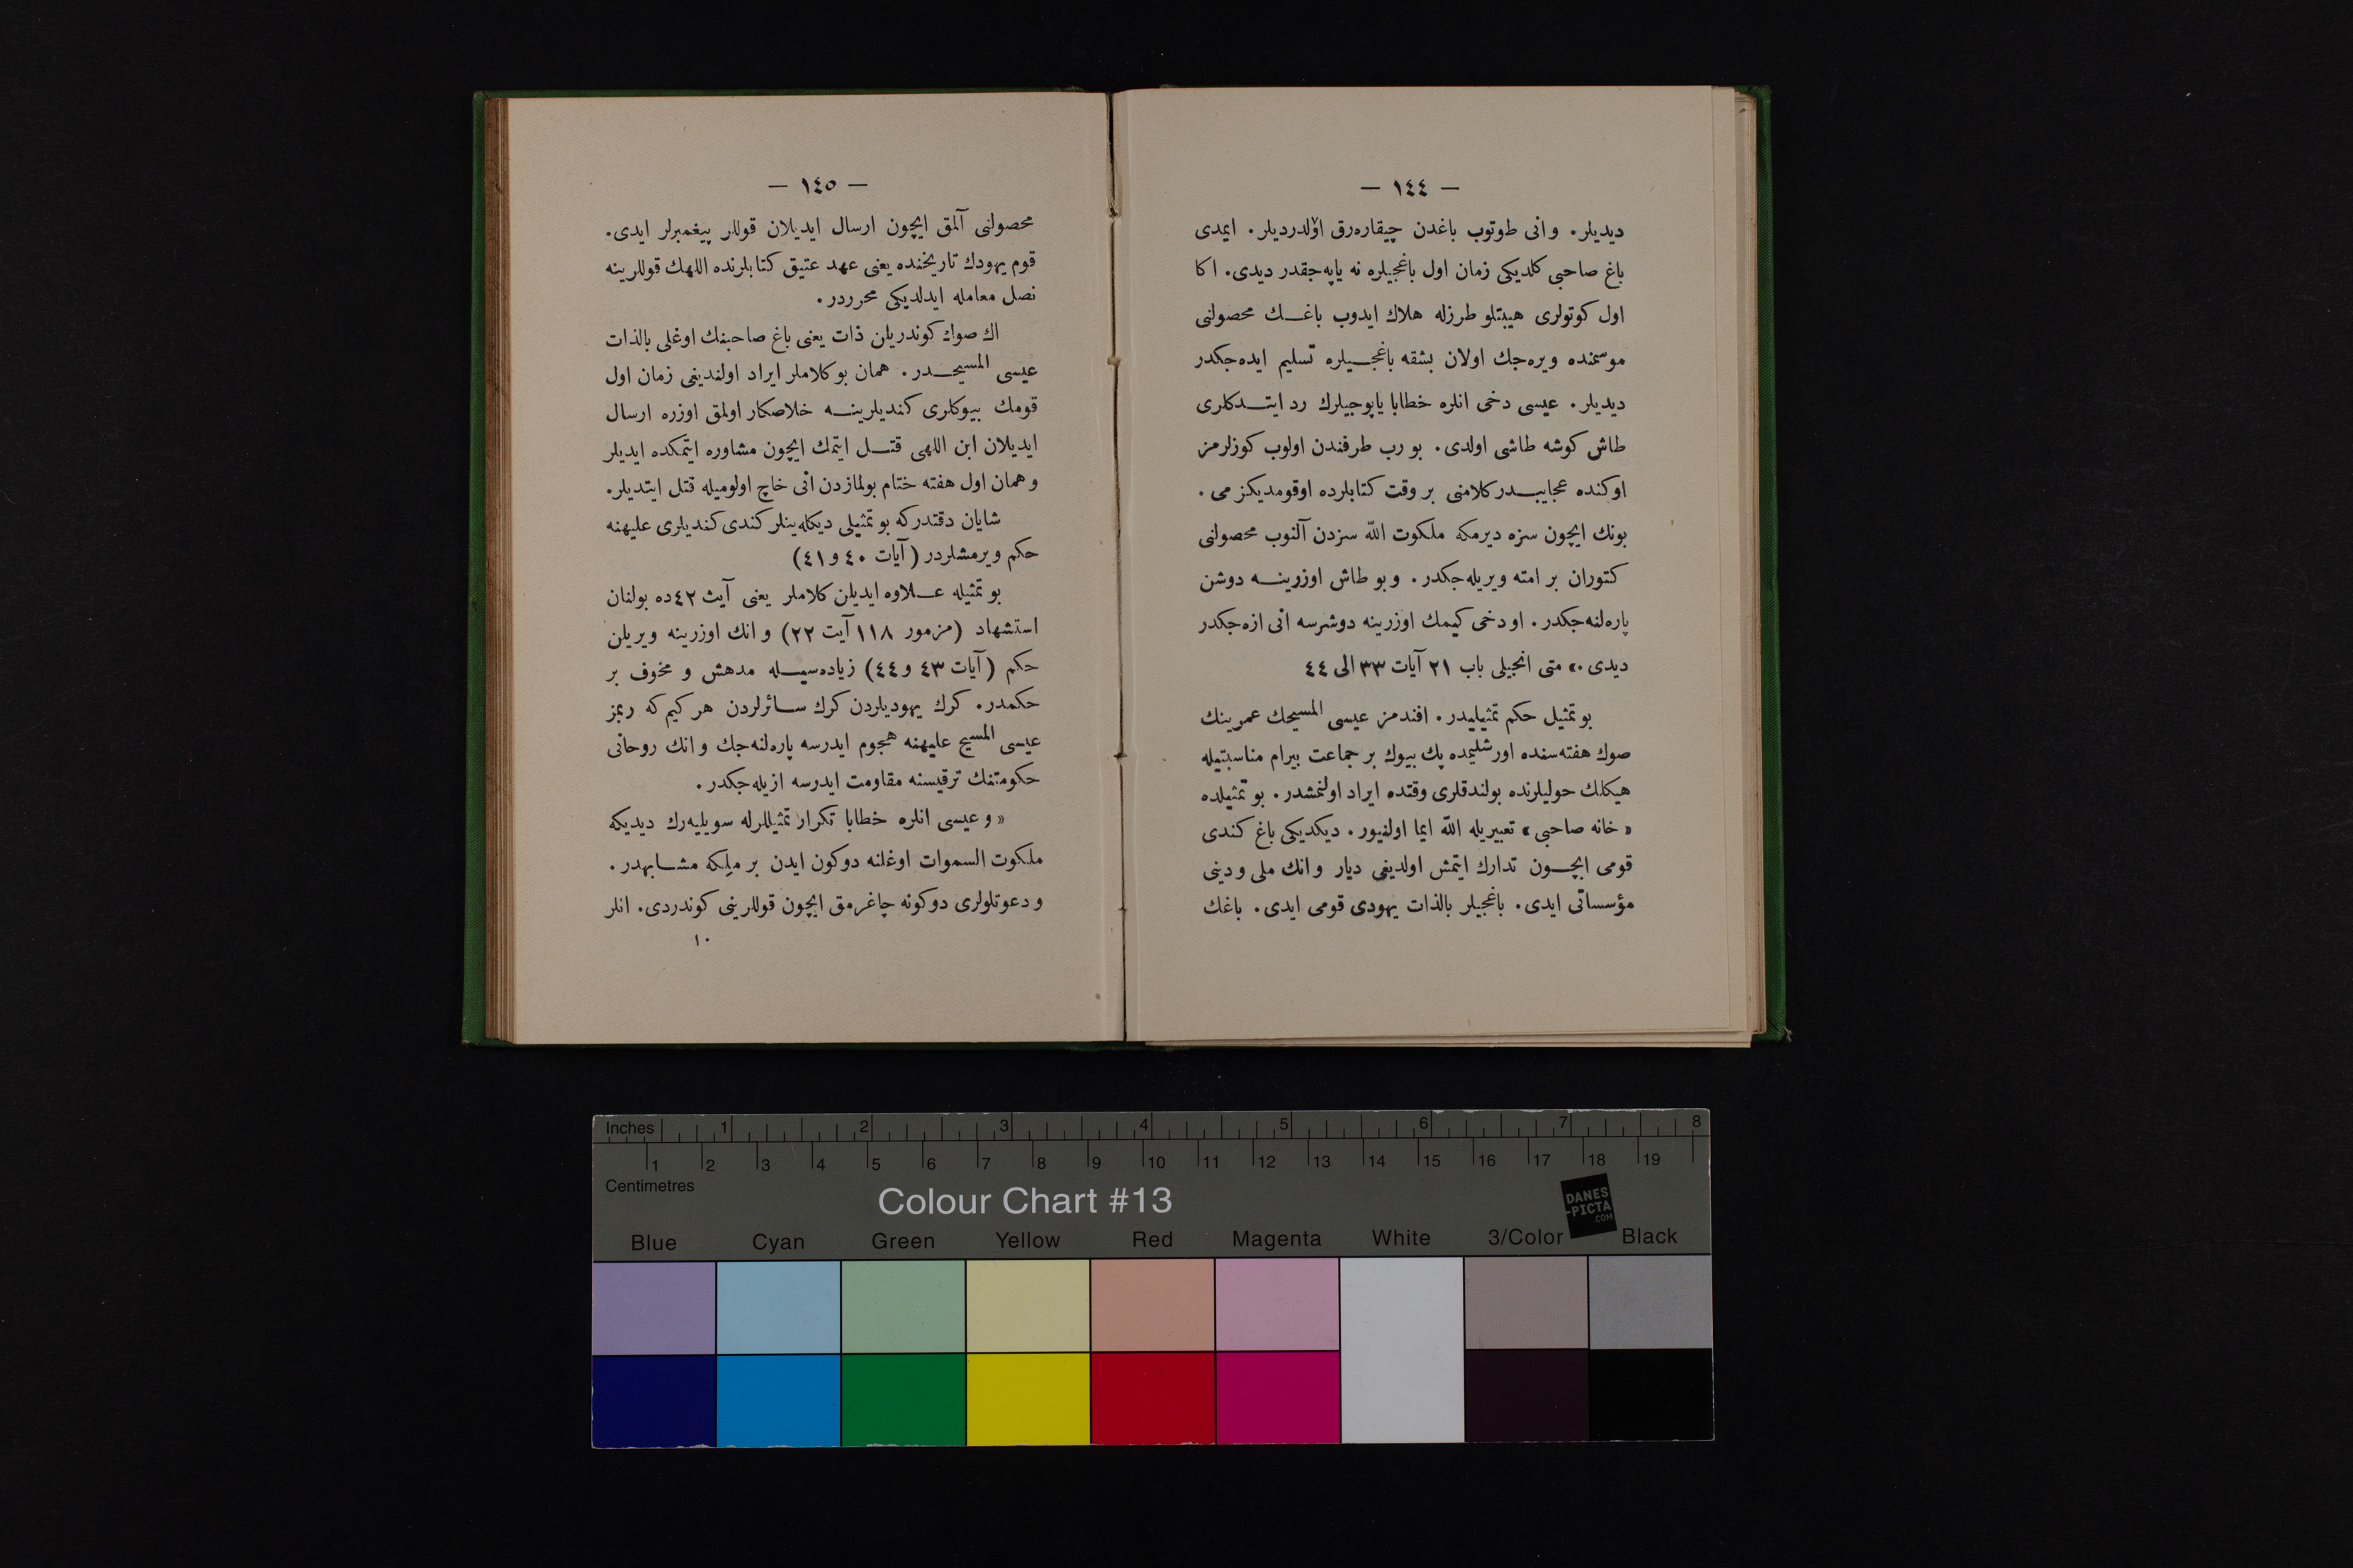 — ١٤٤ —
ديديلر. وانى طوتوب باغدن چيقاره‌رق اولدرديلر. ايمدى
باغ صاحبى كلديكى زمان اول باغجيلره نه ياپه‌جقدر ديدى. اكا
اول كوتولرى هيبتلو طرزله هلاك ايدوب باغك محصولنى
موسمنده ويره‌جك اولان بشقه باغجيلره تسليم ايده‌جكدر
ديديلر. عيسى دخى انلره خطابا ياپوجيلرك رد ايتدكلرى
طاش كوشه طاشى اولدى. بو رب طرفندن اولوب كوزلرمز
اوكنده عجايبدر كلامنى بر وقت كتابلرده اوقومديكز مى.
بونك ايچون سزه ديرمكه ملكوت الله سزدن آلنوب محصولنى
كتوران بر امته ويريله‌جكدر. وبو طاش اوزرينه دوشن
پاره‌لنه‌جكدر. او دخى كيمك اوزرينه دوشرسه انى ازه‌جكدر
ديدى.» متى انجيلى باب ٢١ آيات ٣٣ الى ٤٤
بو تمثيل حكم تمثيليدر. افندمز عيسى المسيحك عمرينك
صوك هفته‌سنده اورشليمده پك بيوك بر جماعت بيرام مناسبتيله
هيكلك حوليلرنده بولندقلرى وقتده ايراد اولنمشدر. بو تمثيلده
«خانه صاحبى» تعبيريله الله ايما اولنيور. ديكديكى باغ كندى
قومى ايچون تدارك ايتمش اولديغى ديار وانك ملى ودينى
مؤسساتى ايدى. باغجيلر بالذات يهودى قومى ايدى. باغك
— ١٤٥ —
محصولنى آلمق ايچون ارسال ايديلان قوللر پيغمبرلر ايدى.
قوم يهودك تاريخنده يعنى عهد عتيق كتابلرنده اللهك قوللرينه
نصل معامله ايدلديكى محرردر.
اك صوك كوندريلن ذات يعنى باغ صاحبنك اوغلى بالذات
عيسى المسيحدر. همان بو كلاملر ايراد اولنديغى زمان اول
قومك بيوكلرى كنديلرينه خلاصكار اولمق اوزره ارسال
ايديلان ابن اللهى قتل ايتمك ايچون مشاوره ايتمكده ايديلر
وهمان اول هفته ختام بولمازدن انى خاچ اولوميله قتل ايتديلر.
شايان دقتدركه بو تمثيلى ديكله‌ينلر كندى كنديلرى عليهنه
حكم ويرمشلردر (آيات ٤٠ و٤١)
بو تمثيله علاوه ايديلن كلاملر يعنى آيث ٤٢ده بولنان
استشهاد (مزمور ١١٨ آيت ٢٢) وانك اوزرينه ويريلن
حكم (آيات ٤٣ و٤٤) زياده‌سيله مدهش و مخوف بر
حكمدر. كرك يهوديلردن كرك سائرلردن هر كيم كه ربمز
عيسى المسيح عليهنه هجوم ايدرسه پاره‌لنه‌جك وانك روحانى
حكومتنك ترقيسنه مقاومت ايدرسه ازيله‌جكدر.
«وعيسى انلره خطابا تكرار تمثيللرله سويليه‌رك ديديكه
ملكوت السموات اوغلنه دوكون ايدن بر ملِكه مشابهدر.
ودعوتلولرى دوكونه چاغرمق ايچون قوللرينى كوندردى. انلر
١٠
Inches 1 2 3 4 5 6 7 8
1 2 3 4 5 6 7 8 9 10 11 12 13 14 15 16 17 18 19
Centimetres
Colour Chart #13
DANES
-PICTA
.COM
Blue Cyan Green Yellow Red Magenta White 3/Color Black